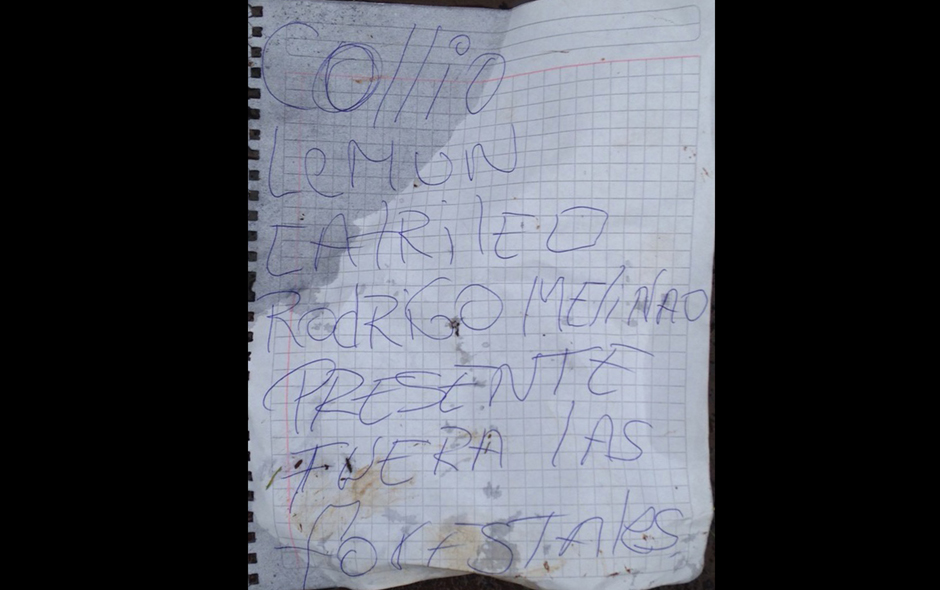 Collio
LeMUN
CAtRilEO
RodRiGO MEliNAO
PRESENTE
FUERA lAS
forESTAleS